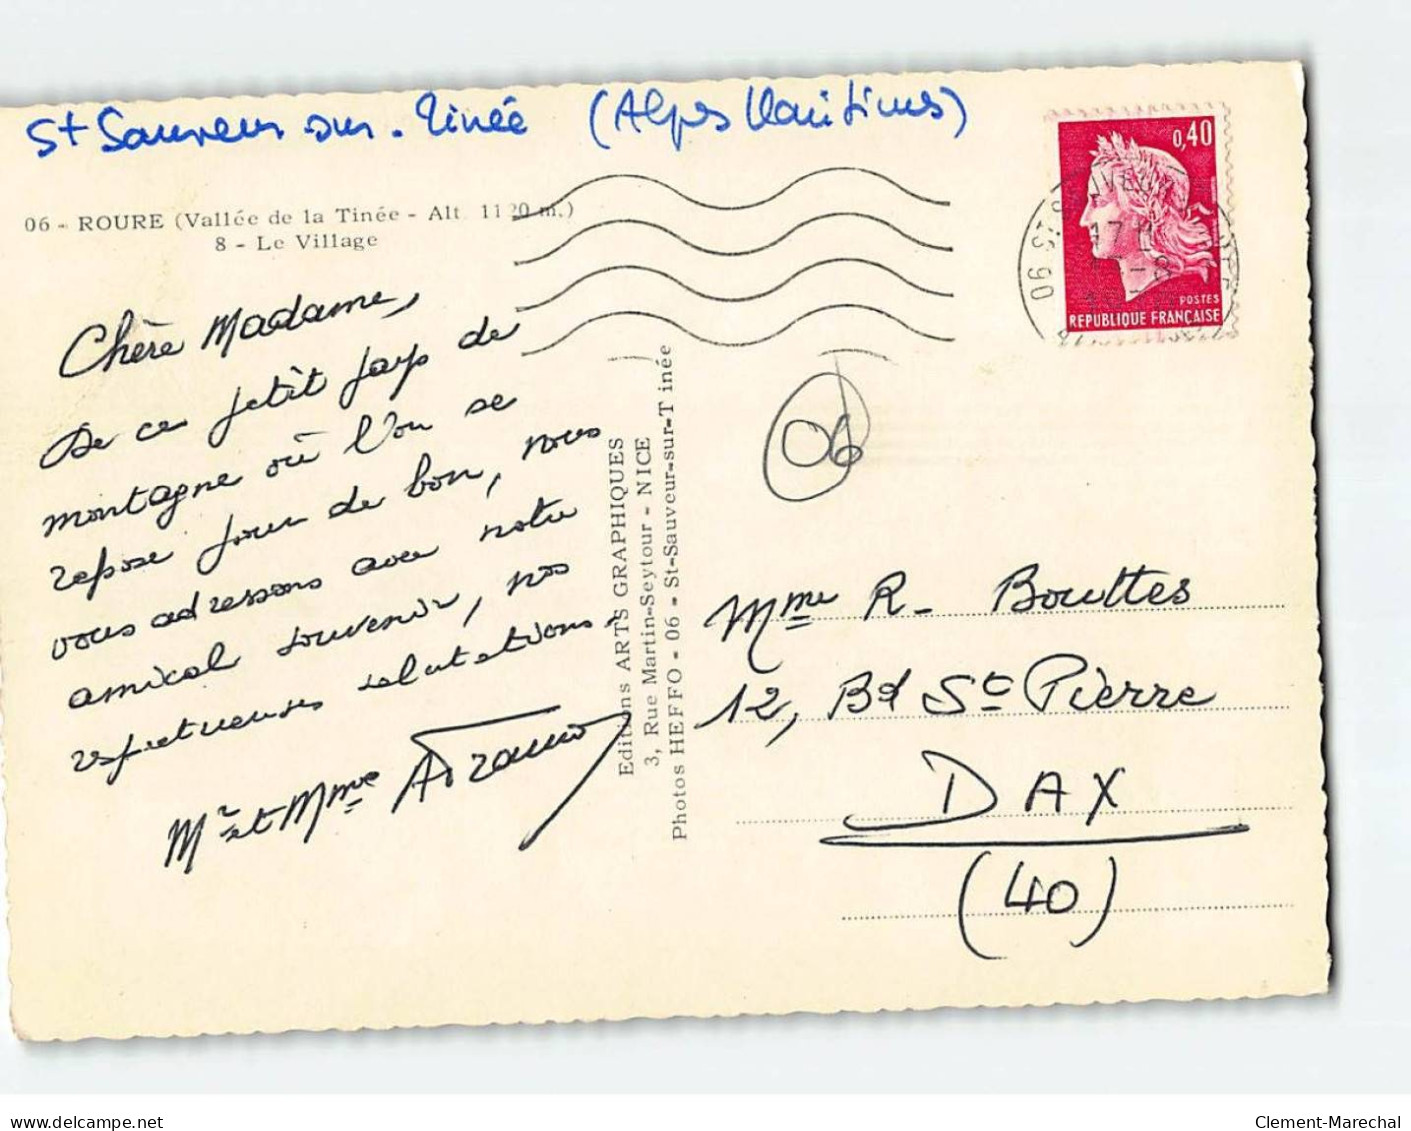 St Sauveur sur-Tinée (Alpes Maritimes)
06 - ROURE (Vallée de la Tinée - Alt. 1120 m.)
8 - Le Village
Chère Madame,
De ce petit pays de
montagne où l'on se
repose pour de bon, nous
vous adressons avec notre
amical souvenir, nos
respectueuses salutations.
Mr et Mme
Editions ARTS GRAPHIQUES
3, Rue Martin-Seytour - NICE
Photos HEFFO - 06 - St-Sauveur-sur-T inée
0,40
POSTES
REPUBLIQUE FRANÇAISE
06 ST
17 H
06
Mme R. Bouttes
12, Bd St Pierre
DAX
(40)
www.delcampe.net
Clement-Marechal